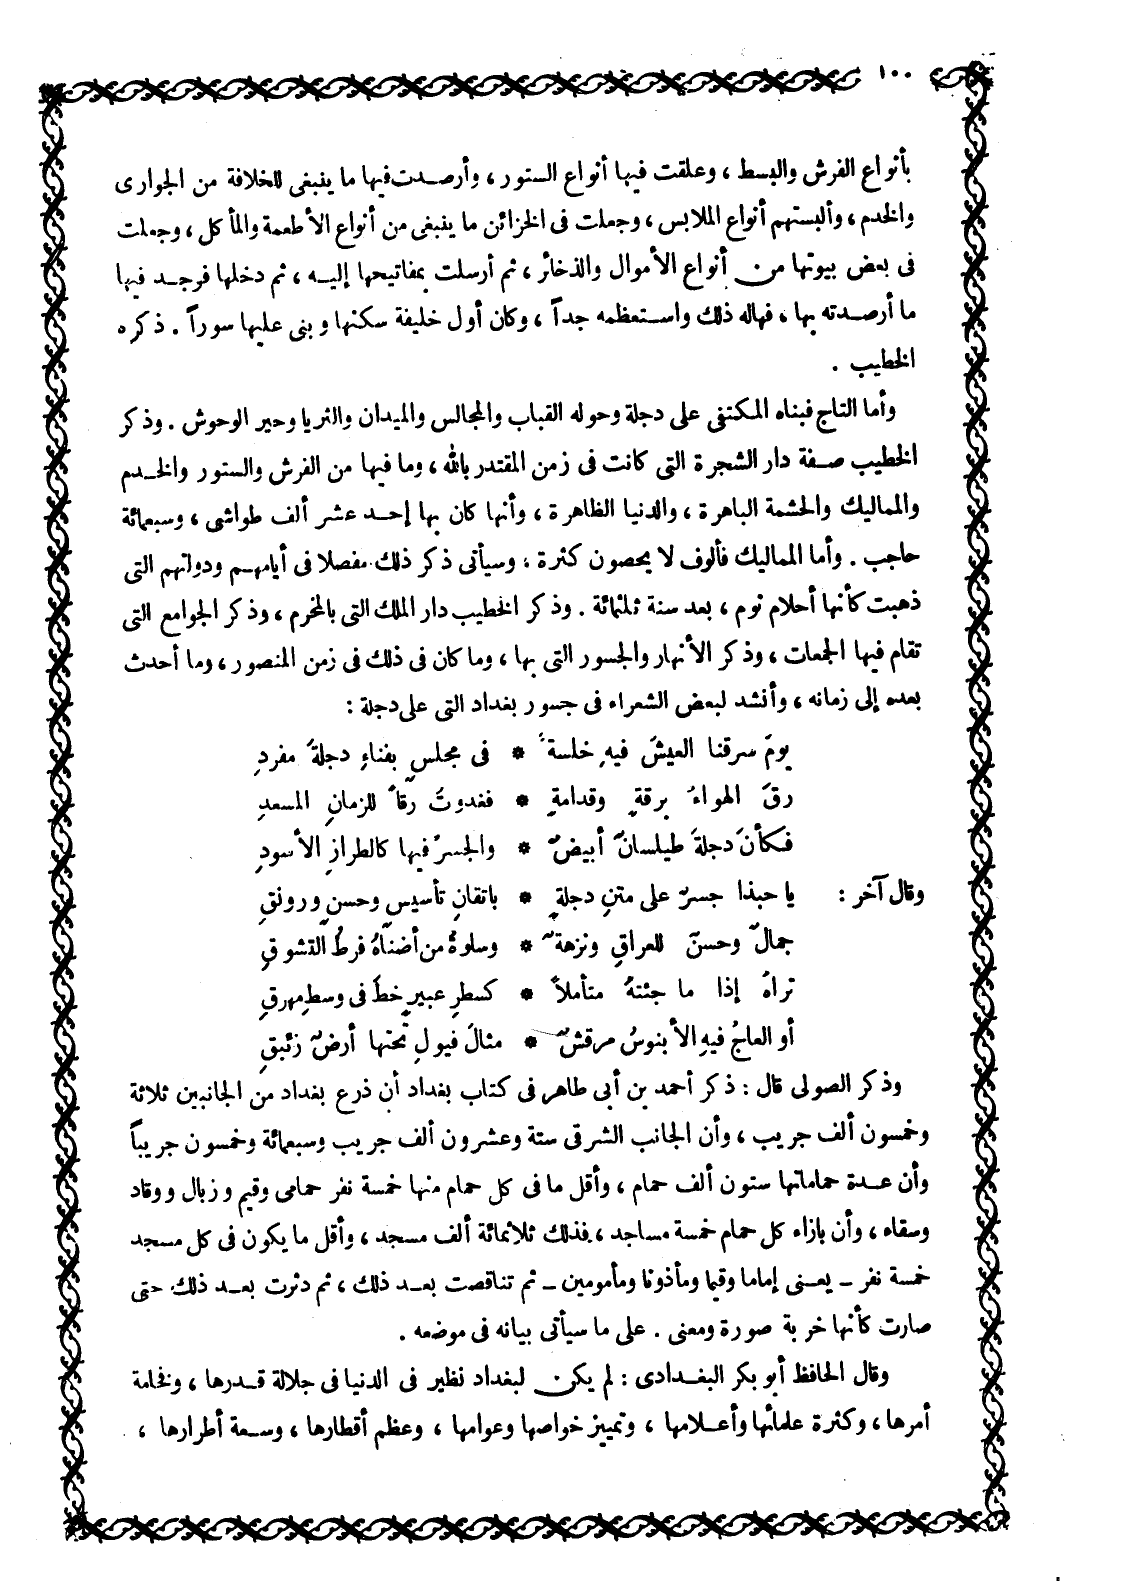 ١٠٠
بأنواع الفرش والبسط ، وعلقت فيها أنواع الستور ، وأرصدت فيها ما ينبغى للخلافة من الجوارى
والخدم ، وألبستهم أنواع الملابس ، وجعلت فى الخزائن ما ينبغى من أنواع الأطعمة والمأكل ، وجعلت
فى بعض بيوتها من أنواع الأموال والذخائر ، ثم أرسلت بمفاتيحها إليه ، ثم دخلها فوجد فيها
ما أرصدته بها ، فهاله ذلك واستعظمه جداً ، وكان أول خليفة سكنها وبنى عليها سوراً . ذكره
الخطيب .
وأما التاج فبناه المكتفى على دجلة وحوله القباب والمجالس والميدان والثريا وحير الوحوش . وذكر
الخطيب صفة دار الشجرة التى كانت فى زمن المقتدر بالله ، وما فيها من الفرش والستور والخدم
والمماليك والحشمة الباهرة ، والدنيا الظاهرة ، وأنها كان بها إحد عشر ألف طواشى ، وسبعمائة
حاجب . وأما المماليك فألوف لا يحصون كثرة ، وسيأتى ذكر ذلك مفصلا فى أيامهم ودولتهم التى
ذهبت كأنها أحلام نوم ، بعد سنة ثلثمائة . وذكر الخطيب دار الملك التى بالمخرم ، وذكر الجوامع التى
تقام فيها الجمعات ، وذكر الأنهار والجسور التى بها ، وما كان فى ذلك فى زمن المنصور ، وما أحدث
بعده إلى زمانه ، وأنشد لبعض الشعراء فى جسور بغداد التى على دجلة :
يومَ سرقنا العيشَ فيهِ خلسةً * فى مجلسٍ بفناءِ دجلةَ مفردِ
رقَ الهواءُ برقةٍ وقدامةٍ * فغدوتَ رقاً للزمانِ المسعدِ
فكأنَ دجلةَ طيلسانٌ أبيضٌ * والجسرُ فيها كالطرازِ الأسودِ
وقال آخر : يا حبذا جسرٌ على متنِ دجلةٍ * باتقانِ تأسيسٍ وحسنٍ ورونقِ
جمالٌ وحسنٌ للعراقِ ونزهةٌ * وسلوةٌ من أضناهُ فرطُ التشوقِ
تراهُ إذا ما جئتهُ متأملاً * كسطرِ عبيرٍ خطَ فى وسطِ مهرقِ
أو العاجُ فيهِ الأبنوسُ مرقشٌ * مثالَ فيولٍ تحتها أرضٌ زئبقِ
وذكر الصولى قال : ذكر أحمد بن أبى طاهر فى كتاب بغداد أن ذرع بغداد من الجانبين ثلاثة
وخمسون ألف جريب ، وأن الجانب الشرقى ستة وعشرون ألف جريب وسبعمائة وخمسون جريباً
وأن عدة حماماتها ستون ألف حمام ، وأقل ما فى كل حمام منها خمسة نفر حمامى وقيم وزبال ووقاد
وسقاء ، وأن بازاء كل حمام خمسة مساجد ، فذلك ثلاثمائة ألف مسجد ، وأقل ما يكون فى كل مسجد
خمسة نفر ــ يعنى إماما وقيما ومأذونا ومأمومين ــ ثم تناقصت بعد ذلك ، ثم دثرت بعد ذلك حتى
صارت كأنها خربة صورة ومعنى . على ما سيأتى بيانه فى موضعه .
وقال الحافظ أبو بكر البغدادى : لم يكن لبغداد نظير فى الدنيا فى جلالة قدرها ، وفخامة
أمرها ، وكثرة علمائها وأعلامها ، وتمييز خواصها وعوامها ، وعظم أقطارها ، وسعة أطرارها ،